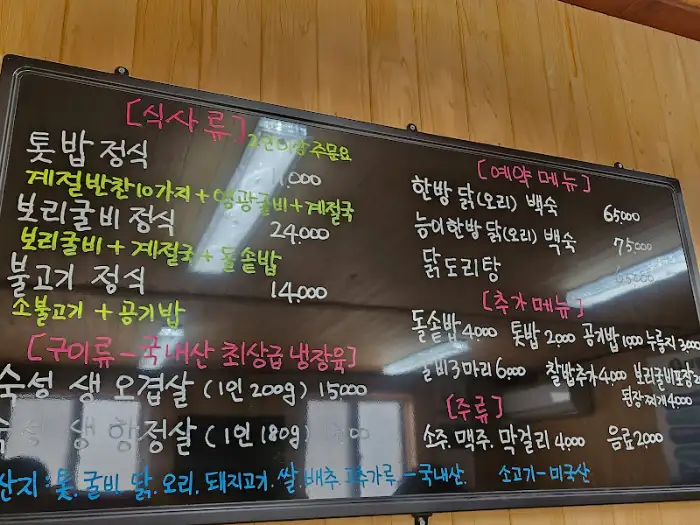 [식사류] 2인이상 주문요
톳밥 정식
계절반찬10가지 + 영광굴비 + 계절국
보리굴비 정식 24,000
보리굴비 + 계절국 + 돌솥밥
불고기 정식 14,000
소불고기 + 공기밥
[구이류 - 국내산 최상급 냉장육]
숙성 생 오겹살 (1인 200g) 15,000
생 항정살 (1인 180g)
[예약메뉴]
한방 닭(오리) 백숙 65,000
능이한방 닭(오리) 백숙 75,000
닭도리탕
[추가메뉴]
돌솥밥 4,000 톳밥 2,000 공기밥 1,000 누룽지 3,000
굴비3마리 6,000 찰밥추가 4,000 보리굴비포장
된장찌개 4,000
[주류]
소주. 맥주. 막걸리 4,000 음료 2,000
산지 : 톳. 굴비. 닭. 오리. 돼지고기. 쌀. 배추. 고추가루. - 국내산. 소고기 - 미국산